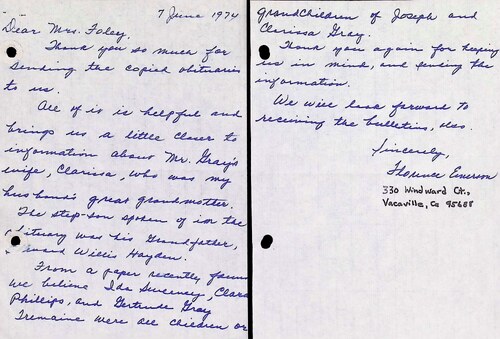 7 June 1974
Dear Mrs. Foley,
Thank you so much for
sending the copied obituaries
to us.
All of is is helpful and
brings us a little closer to
information about Mr. Gray's
wife, Clarissa, who was my
husband's great grandmother.
The step-son spoken of in the
obituary was his Grandfather,
Willis Hayden.
From a paper recently found
we believe Ida Sweeney, Clara
Phillips, and Gertrude Gray
Tremaine were all children or
grandchildren of Joseph and
Clarissa Gray.
Thank you again for keeping
us in mind, and sending the
information.
We will look forward to
receiving the bulletins, also.
Sincerely,
Florence Emerson
330 Windward Ct.,
Vacaville, Ca 95688